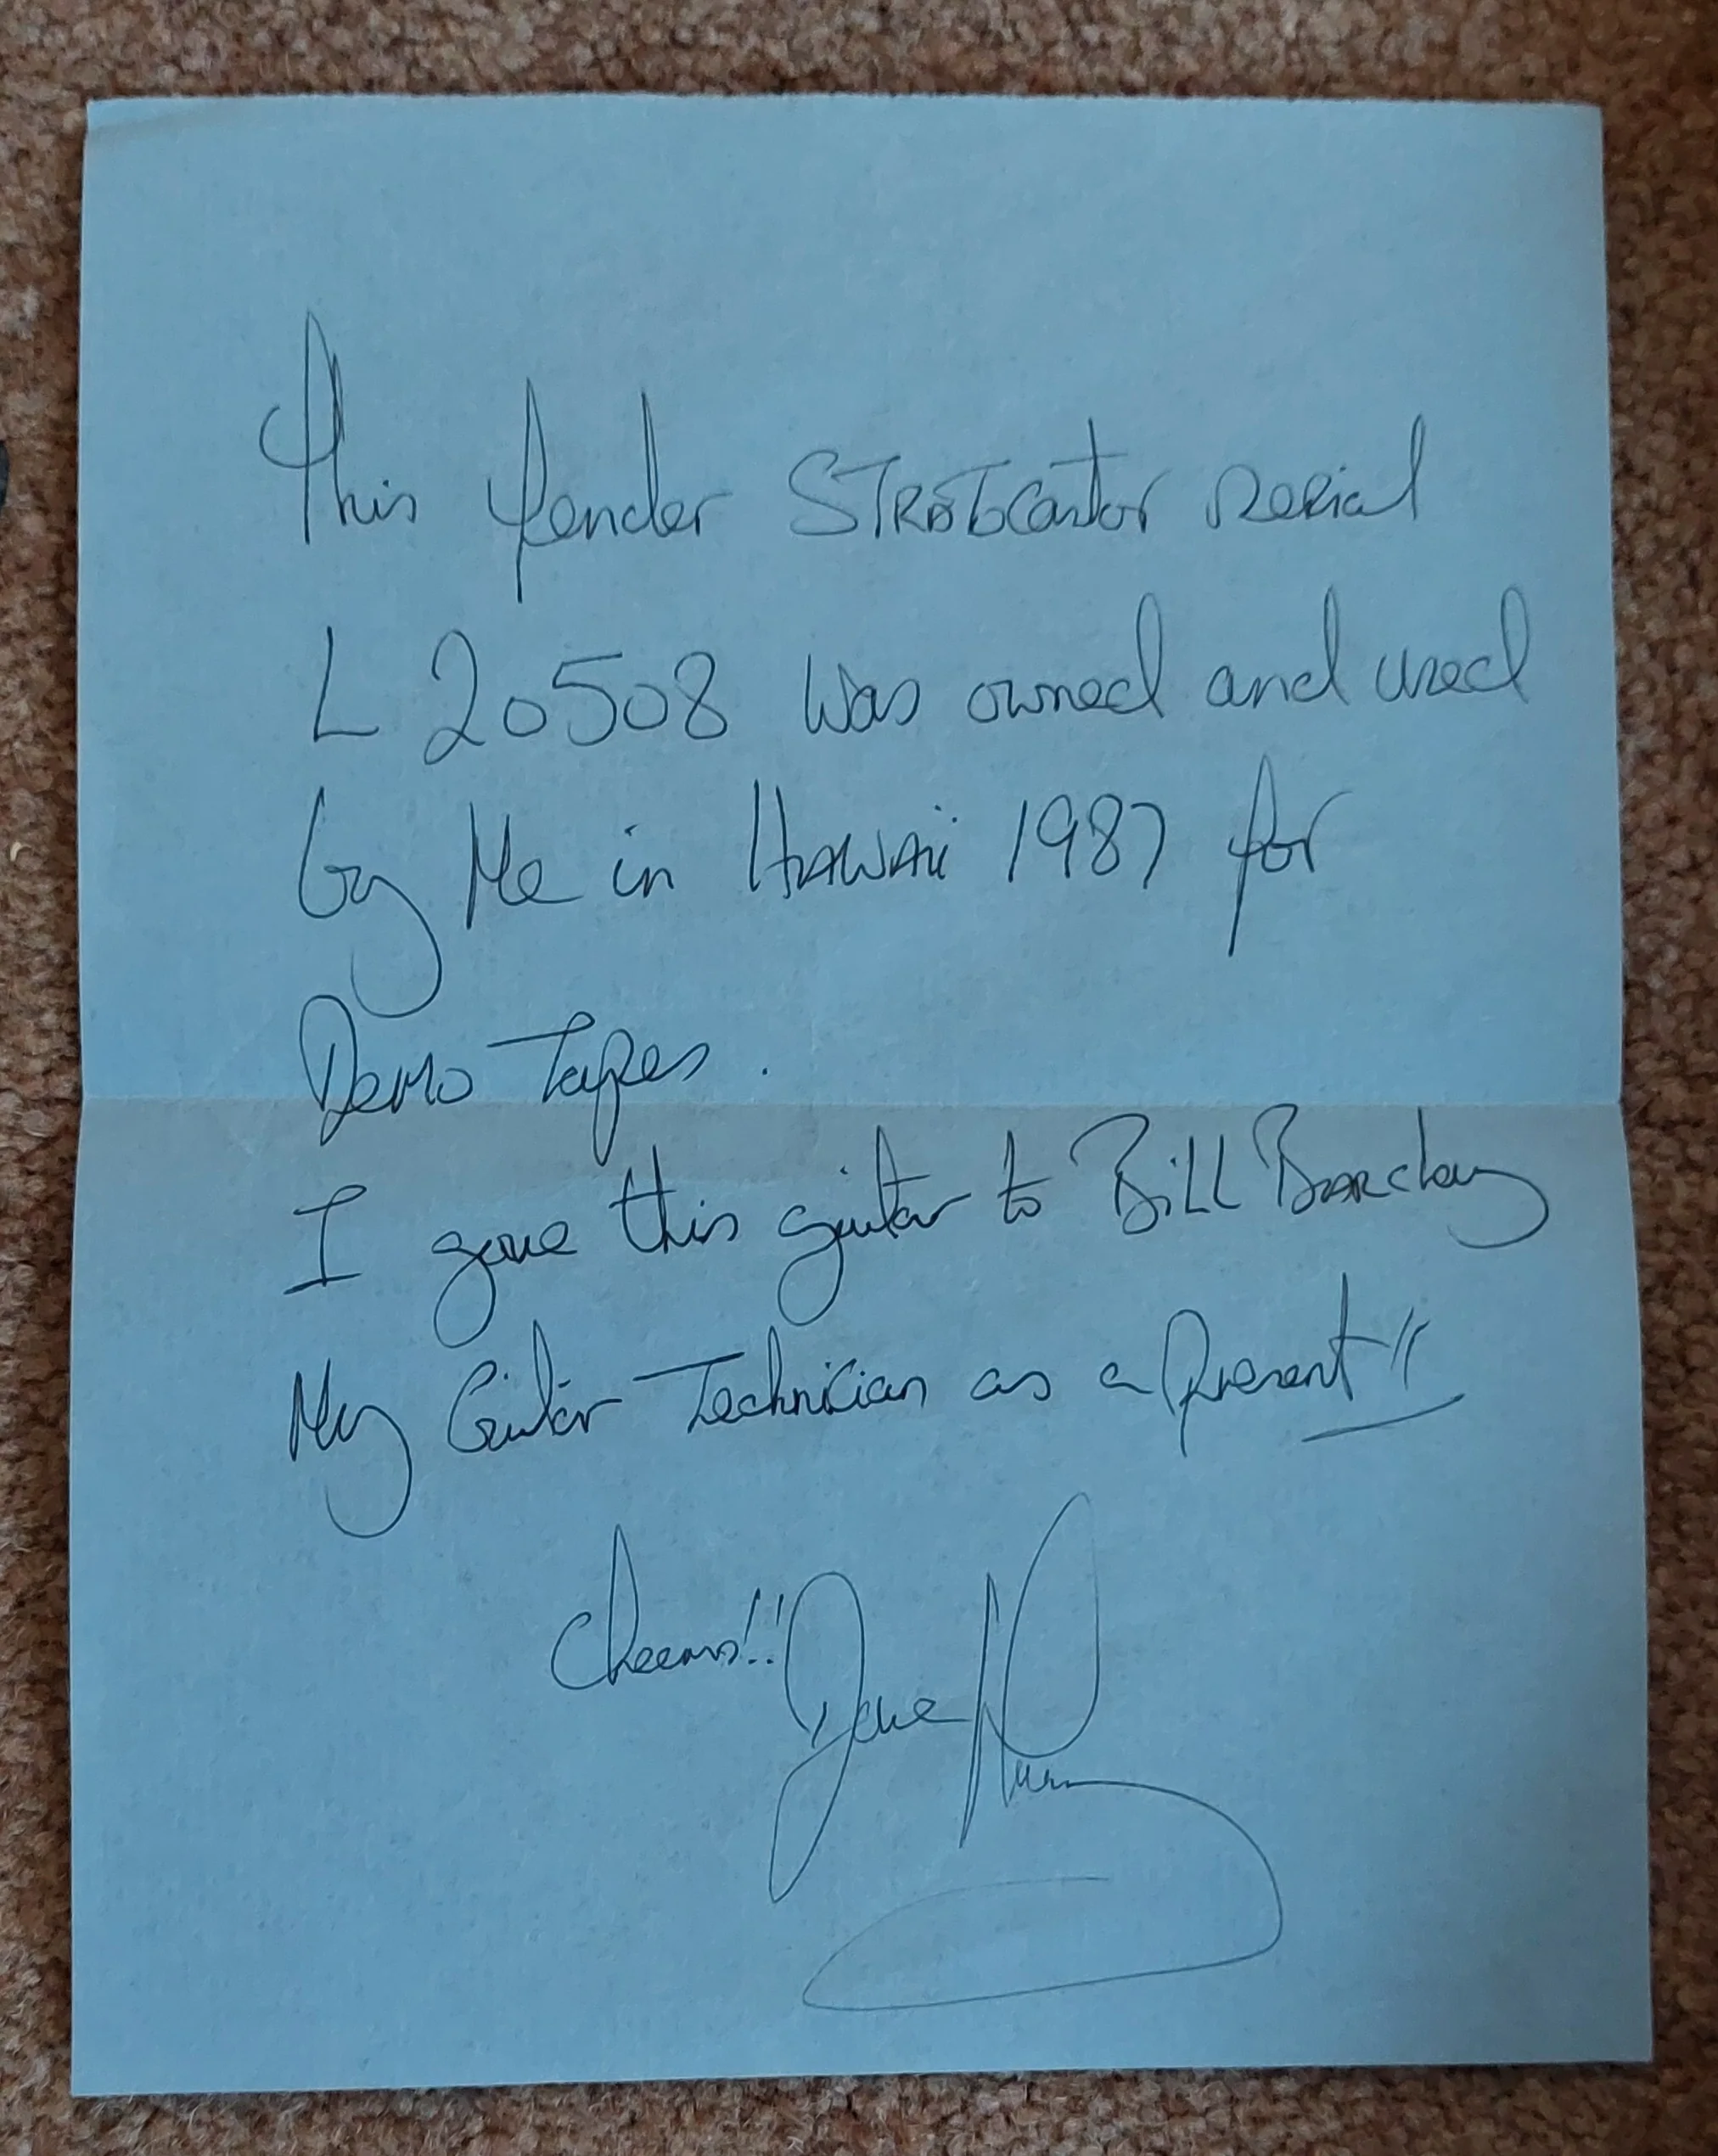 This fender STRATocastor serial
L 20508 was owned and used
by Me in HAWAii 1987 for
Demo Tapes.
I gave this guitar to BiLL BARclay
My Guitar Technician as a present!!
Cheers!! Dave